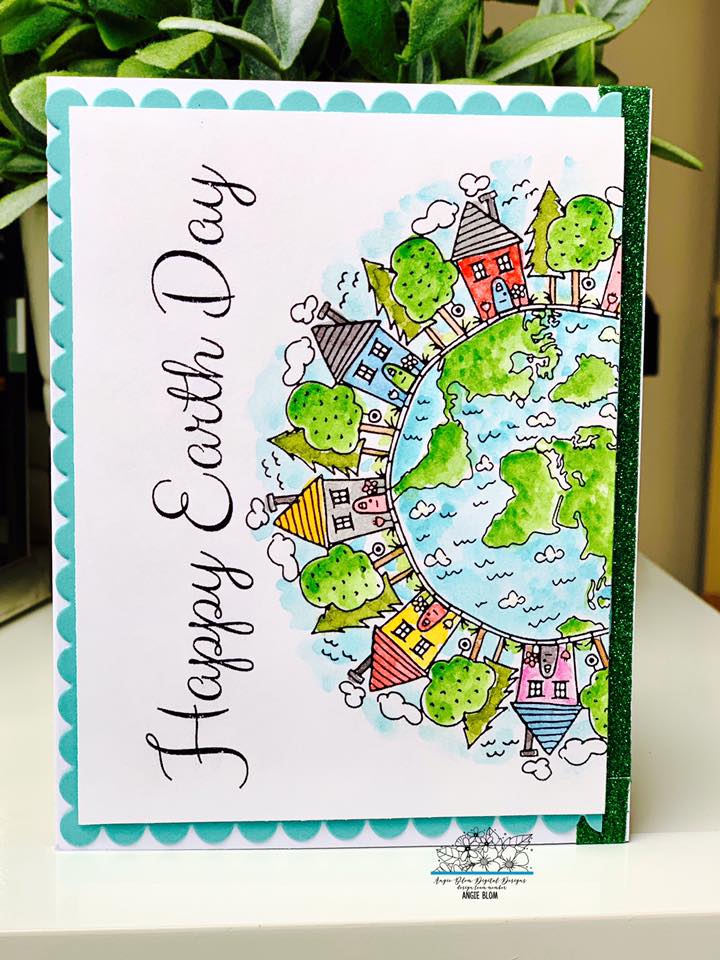 Happy Earth Day
Angie Blom Digital Designs
design team member
ANGIE BLOM